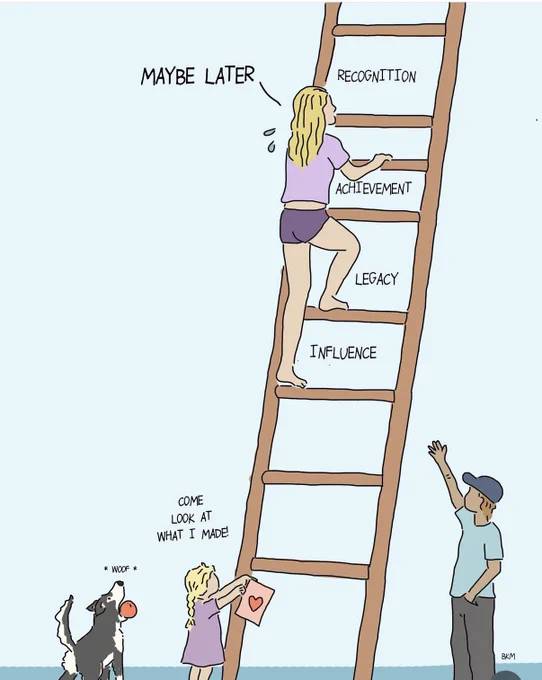 MAYBE LATER
RECOGNITION
ACHIEVEMENT
LEGACY
INFLUENCE
COME
LOOK AT
WHAT I MADE!
* WOOF *
BKM